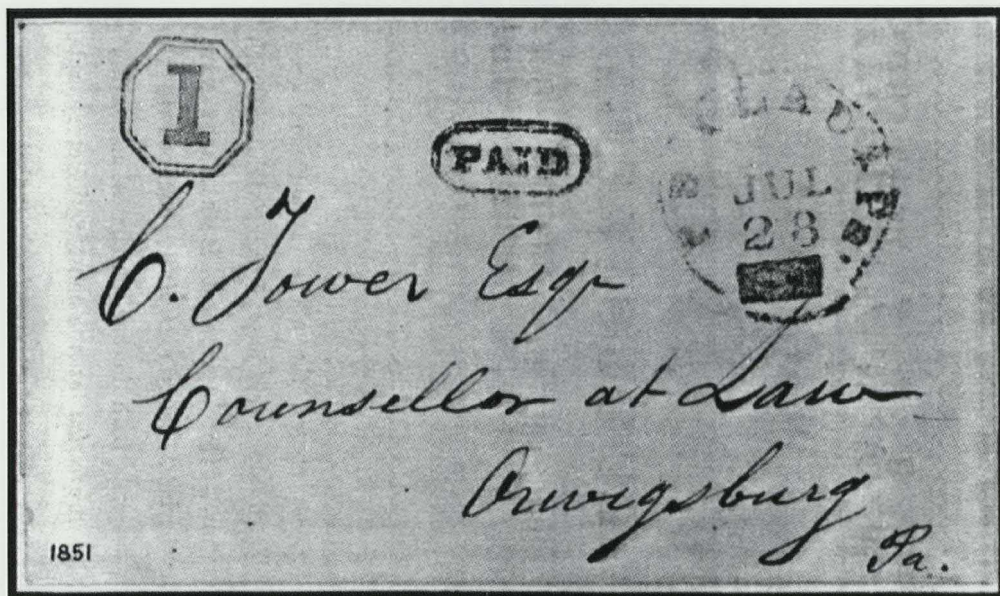 1
PAID
JUL
28
C. Tower Esqr
Counsellor at Law
Orwigsburg
Pa.
1851